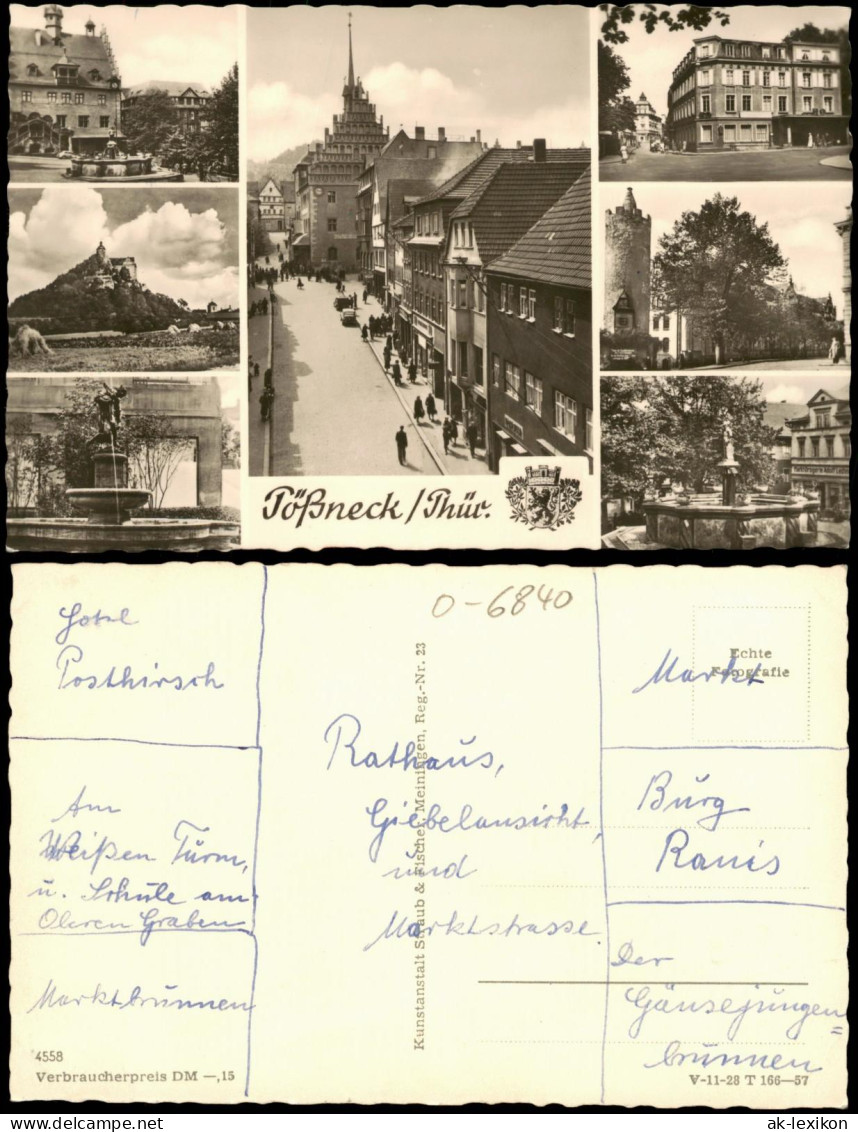 Pößneck/Thür.
Hotel
Posthirsch
O-6840
Echte
Fotografie
Markt
Rathaus,
Giebelansicht,
und
Marktstrasse
Am
Weißen Turm,
u. Schule am
Oberen Graben
Burg
Ranis
Marktbrunnen
Der
Gänsejungen=
brunnen
Kunstanstalt Straub & Fischer, Meiningen, Reg.-Nr. 23
4558
Verbraucherpreis DM —,15
V-11-28 T 166—57
ak-lexikon